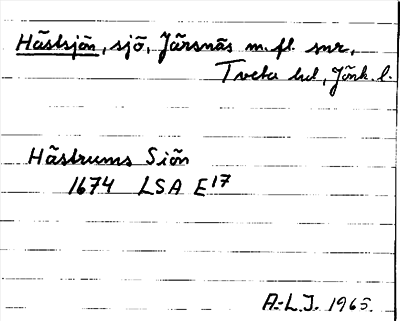 Hästsjön, sjö, Järsnäs m. fl. snr,
Tveta hd, Jönk. l.
Hästrums Siön
1674 LSA E17
A-L.J. 1965.